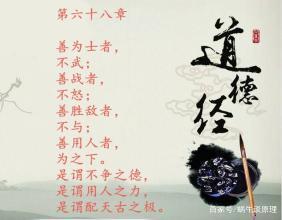 第六十八章
善为士者，
不武；
善战者，
不怒；
善胜敌者，
不与；
善用人者，
为之下。
是谓不争之德，
是谓用人之力，
是谓配天古之极。
道德经
百家号/蜗牛谈原理